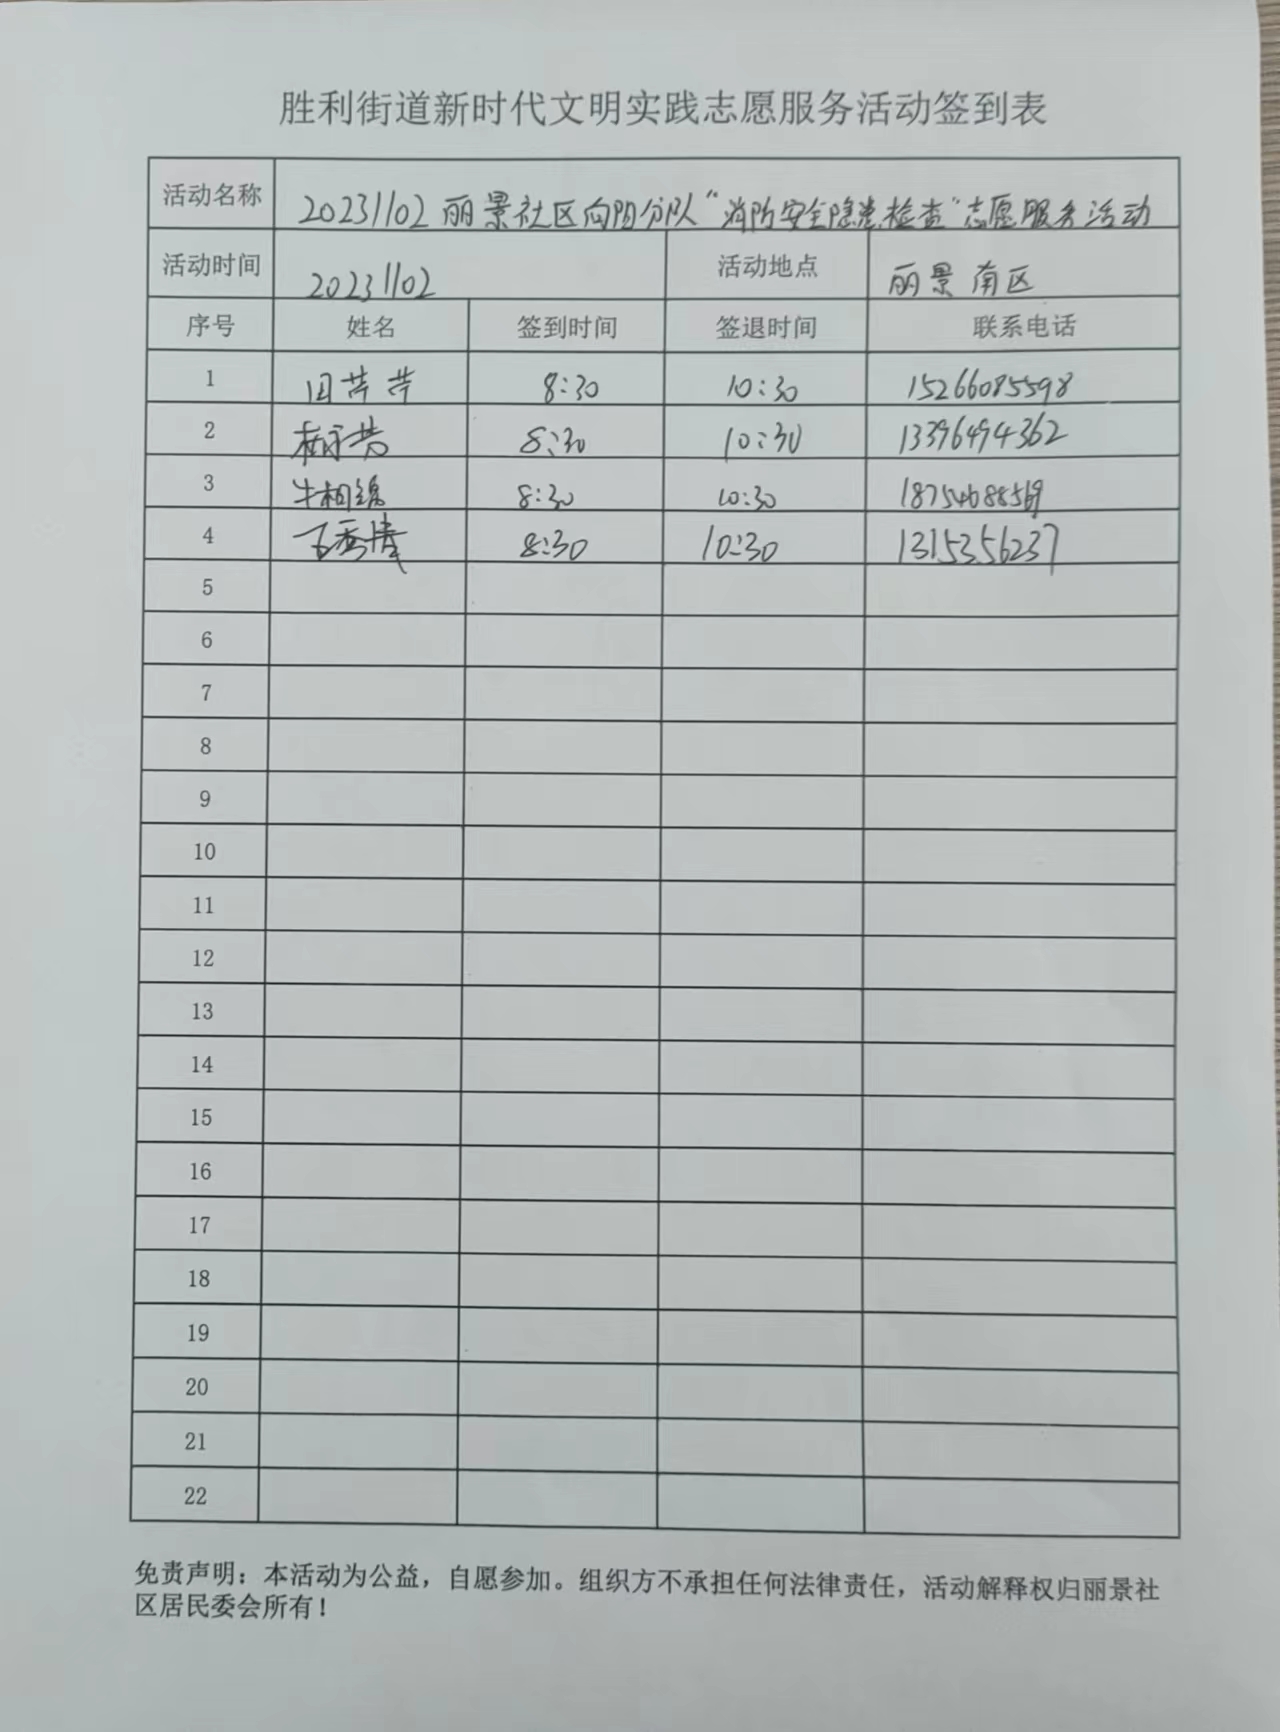 胜利街道新时代文明实践志愿服务活动签到表
活动名称 20231102丽景社区向阳分队“消防安全隐患检查”志愿服务活动
活动时间 20231102 活动地点 丽景南区
序号 姓名 签到时间 签退时间 联系电话
1 田芹芹 8:30 10:30 15266085598
2 8:30 10:30 13396494362
3 牛相 8:30 10:30 18754688569
4 8:30 10:30 13153556237
5
6
7
8
9
10
11
12
13
14
15
16
17
18
19
20
21
22
免责声明：本活动为公益，自愿参加。组织方不承担任何法律责任，活动解释权归丽景社
区居民委会所有！